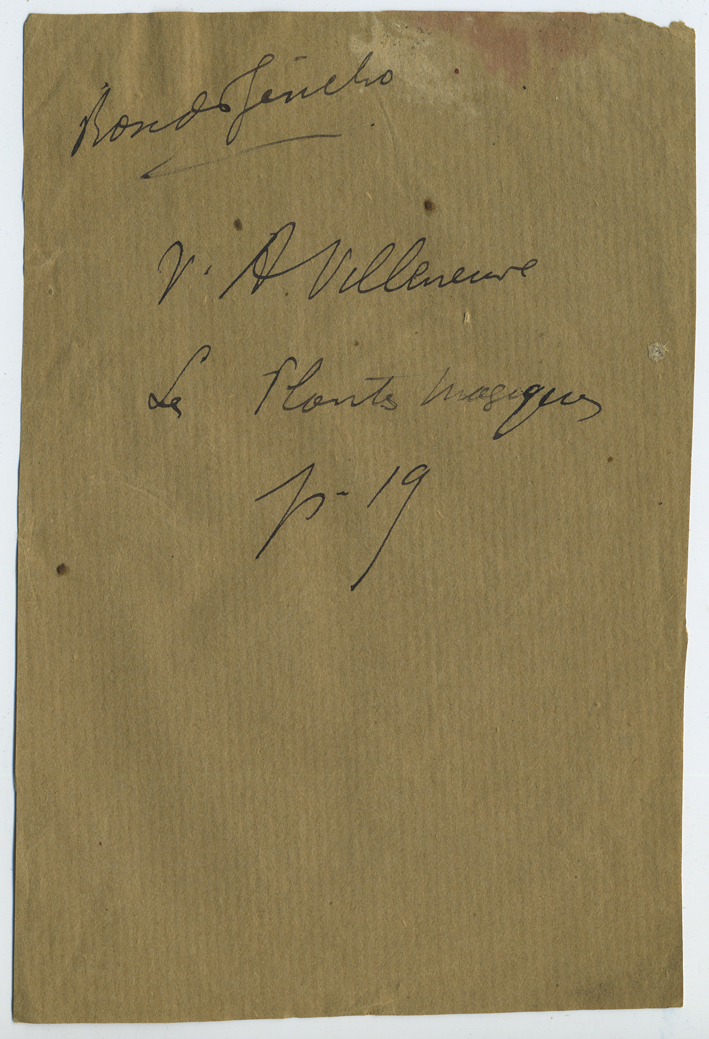 Rose de Jéricho
V. A. Villeneuve
Les Plantes magiques
p. 19